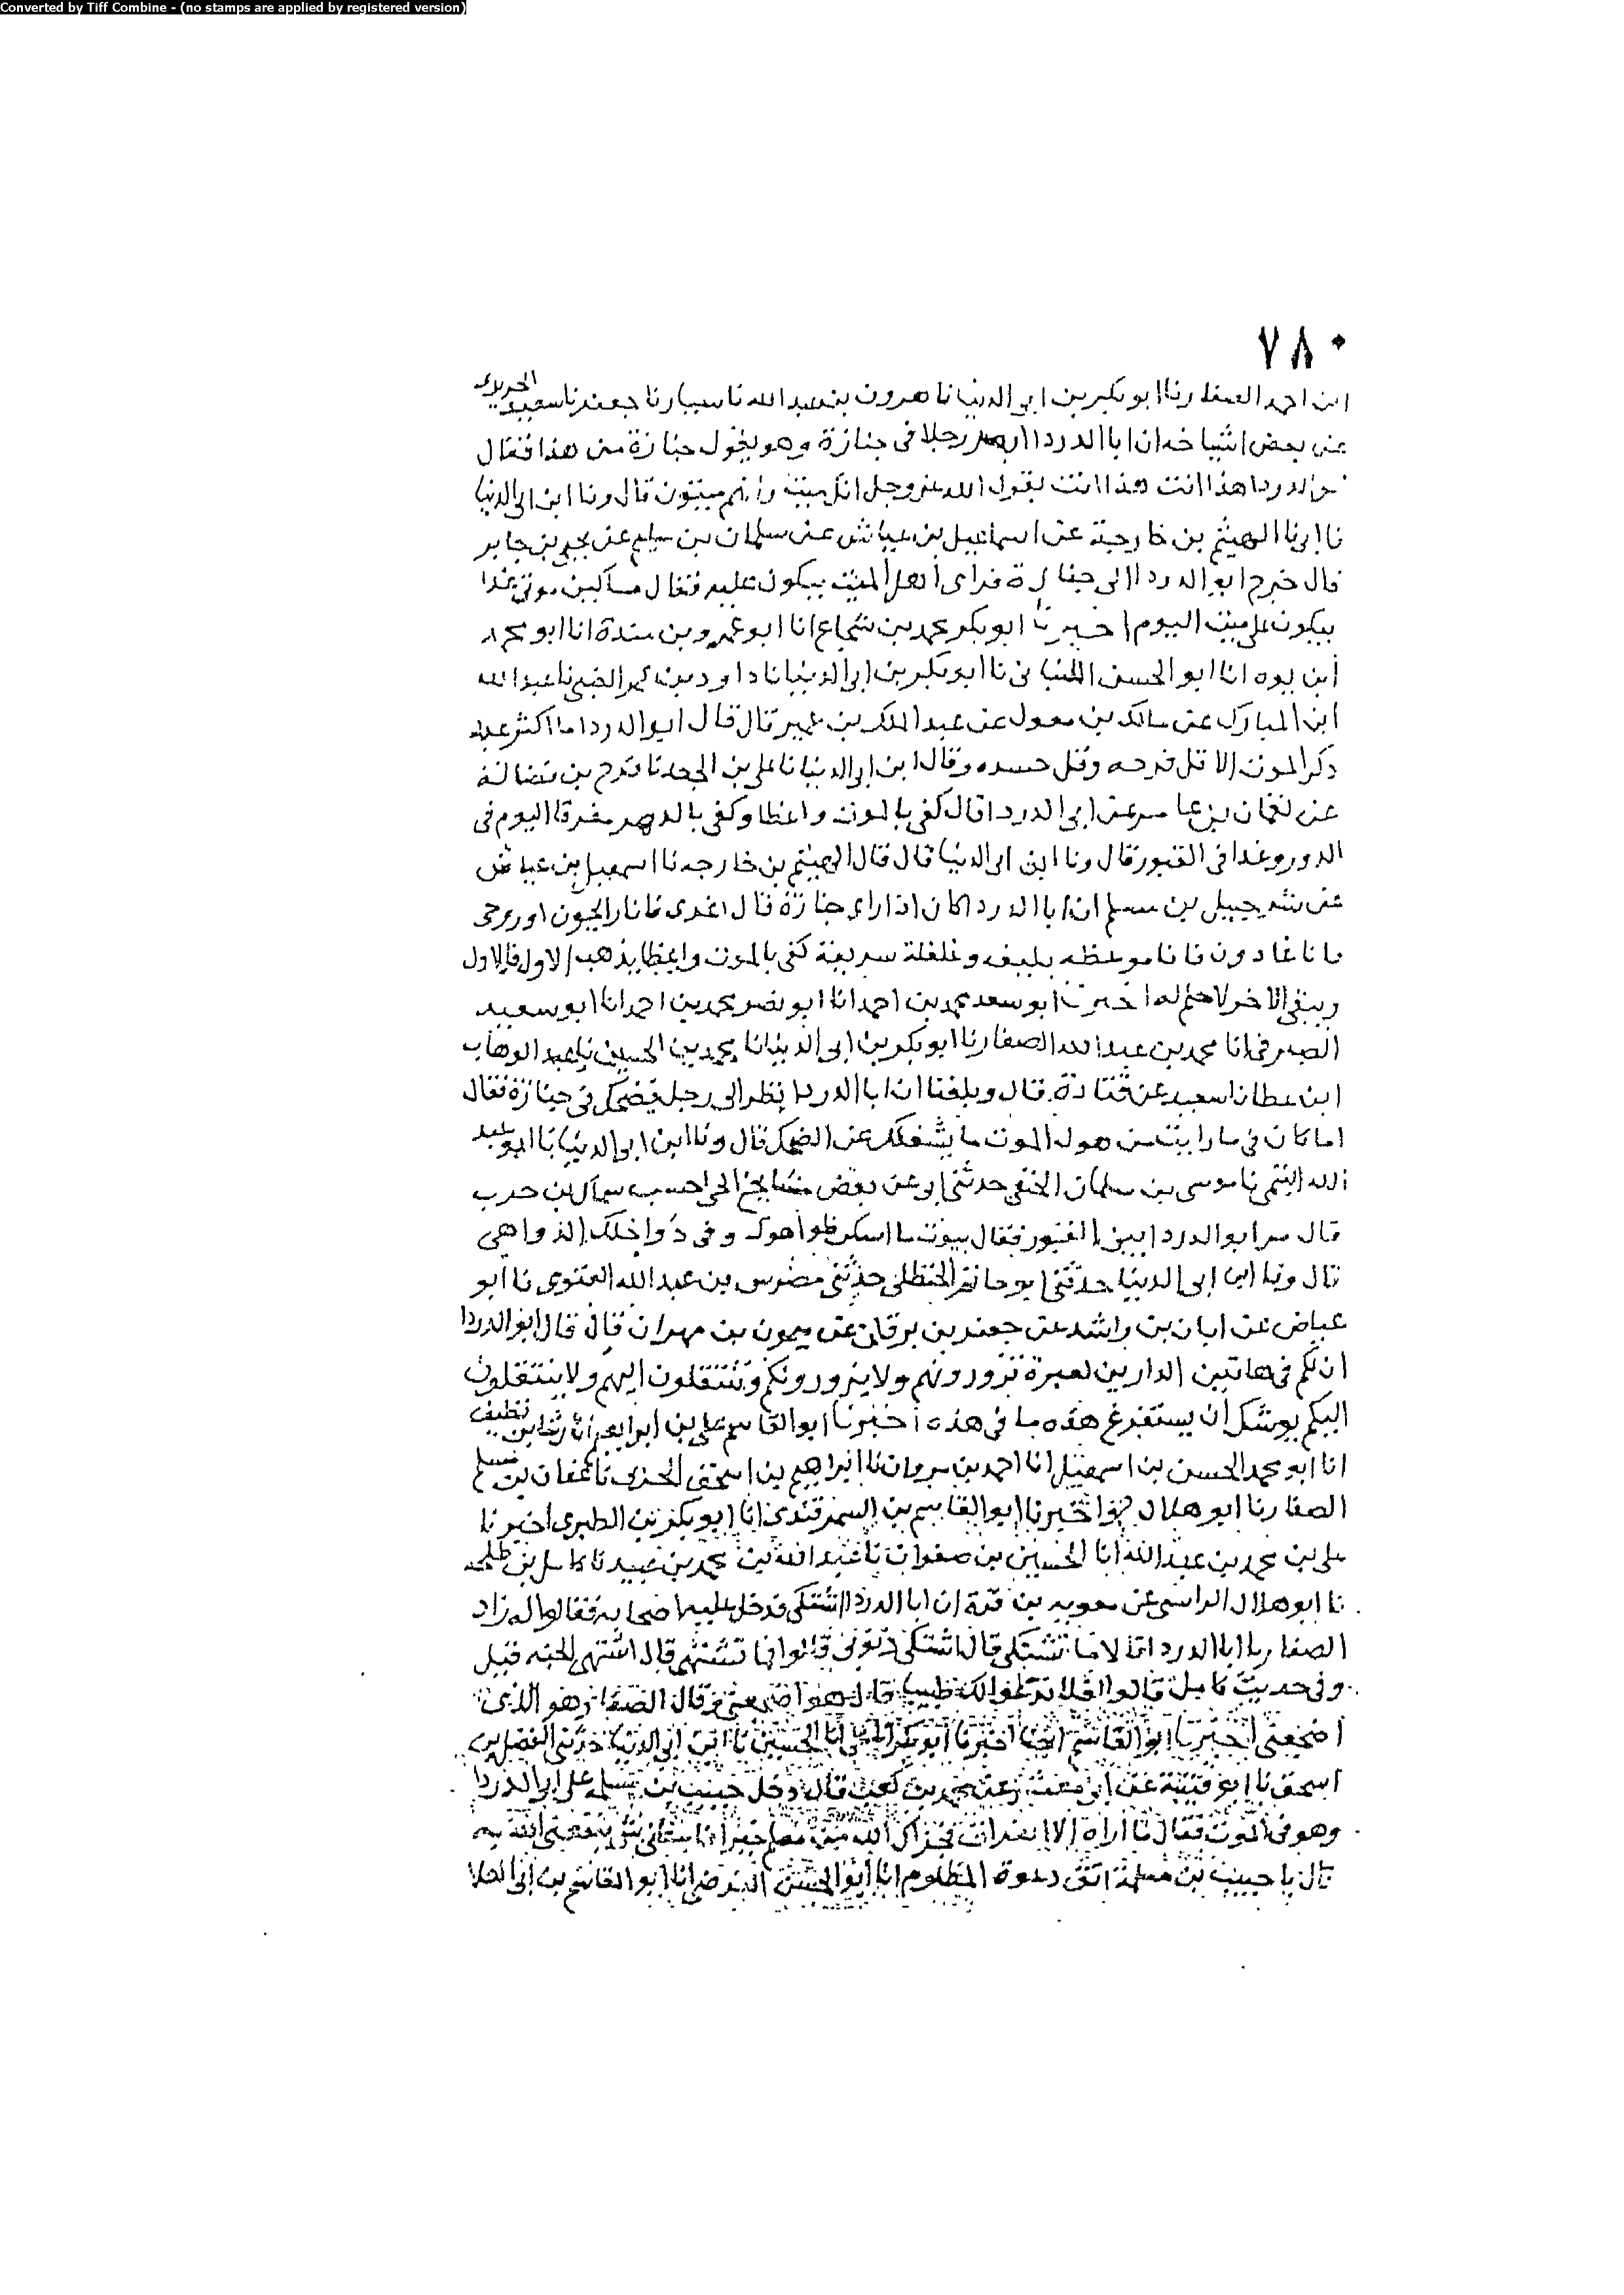 Converted by Tiff Combine - (no stamps are applied by registered version)
٧٨٠
ابن احمد الصفار نا ابو بكر بن ابى الدنيا نا هرون بن عبد الله نا سيار نا جعفر نا سعيد الجريرى
عن بعض اشياخه ان ابا الدردا ابصر رجلا فى جنازة وهو يقول جنازة من هذا فقال
ابو الدردا هذا انت هذا انت يقول الله عز وجل انك ميت وانهم ميتون قال ونا ابن ابى الدنيا
نا الهيثم بن خارجة عن اسماعيل بن عياش عن سلمان بن سليم عن يحيى بن جابر
قال خرج ابو الدردا الى جنازة فراى اهل الميت يبكون عليه فقال مساكين موتى غدا
يبكون على ميت اليوم اخبرنا ابو بكر محمد بن شجاع انا ابو عمرو بن مندة انا ابو محمد
ابن يوه انا ابو الحسن اللنبانى نا ابو بكر بن ابى الدنيا نا داود بن عمر الضبى نا عبد الله
ابن المبارك عن مالك بن معول عن عبد الملك بن عمير قال قال ابو الدردا ما اكثر عبد
ذكر الموت الا قل فرحه وقل حسده وقال ابن ابى الدنيا نا على بن الجعد نا فرج بن فضالة
عن لقمان بن عامر عن ابى الدردا قال كفى بالموت واعظا وكفى بالدهر مفرقا اليوم فى
الدور وغدا فى القبور قال ونا ابن ابى الدنيا قال قال الهيثم بن خارجه نا اسمعيل بن عياش
عن شرحبيل بن مسلم ان ابا الدردا كان اذا راى جنازة قال اغدى فانا رايحون او روحى
فانا غادون فانا موعظه بليغه وغفلة سريعة كفى بالموت واعظا يذهب الاول فالاول
ويبقى الاخر لا حلم له اخبرنا ابو سعد محمد بن احمد انا ابو نصر محمد بن احمد انا ابو سعيد
الصيرفى انا محمد بن عبد الله الصفار نا ابو بكر بن ابى الدنيا نا محمد بن الحسين نا عبد الوهاب
ابن عطا نا سعيد عن قتادة قال وبلغنا ان ابا الدردا نظر الى رجل يضحك فى جنازة فقال
اما كان فى ما رايت من هول الموت ما يشغلك عن الضحك قال ونا ابن ابى الدنيا نا ابو عبد
الله التيمى نا موسى بن سلمان الحنفى حدثنى ابو عن بعض مشايخ الحى احسب سماك بن حرب
قال مر ابو الدردا بين القبور فقال بيوت ما اسكن ظواهرك وفى دواخلك الدواهى
قال ونا ابن ابى الدنيا حدثنى ابو حاتم الحنظلى حدثنى مضرس بن عبد الله الغنوى نا ابو
عياض عن ابان بن راشد عن جعفر بن برقان عن ميمون بن مهران قال قال ابو الدردا
ان لكم فى هاتين الدارين لعبرة تزورونهم ولا يزورونكم وتنتقلون اليهم ولا ينتقلون
اليكم يوشك ان يستفرغ هذه ما فى هذه اخبرنا ابو القاسم على بن ابراهيم انا رشا بن نظيف
انا ابو محمد الحسن بن اسمعيل انا احمد بن مروان نا ابراهيم بن اسحق الحربى نا عفان بن مسلم
الصفار نا ابو هلال ح واخبرنا ابو القاسم بن السمرقندى انا ابو بكر بن الطبرى اخبرنا
على بن محمد بن عبد الله انا الحسين بن صفوان نا عبد الله بن محمد بن عبيد نا كامل بن طلحه
نا ابو هلال الراسبى عن معويه بن قرة ان ابا الدردا اشتكى فدخل عليه اصحابه فقالوا له زاد
الصفار يا ابا الدردا قالا ما تشتكى قال اشتكى ذنوبى قالوا فما تشتهى قال اشتهى الجنه قيل
وفى حديث كامل قالوا افلا ندعوا لك طبيبا قال هو اضجعنى وقال الصفار وهو الذى
اضجعنى اخبرنا ابو القاسم ايضا اخبرنا ابو بكر انا الحسين نا ابن ابى الدنيا حدثنى الفضل بن
اسحق نا ابو قتيبة عن ابى معشر عن محمد بن كعب قال دخل حبيب بن مسلمه على ابى الدردا
وهو فى الموت فقال ما اراه الا فجزاك الله من معلم خيرا ينفعنى الله به
قال يا حبيب بن مسلمة اتق دعوة المظلوم انا ابو الحسن الفرضى انا ابو القاسم بن ابى العلا